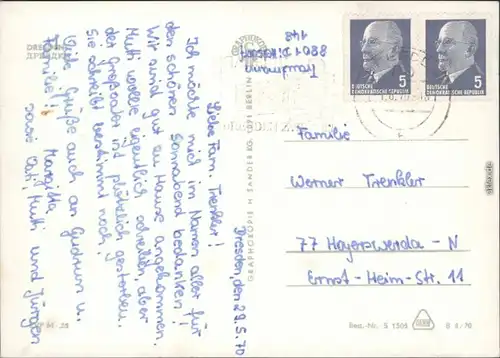 DRESDEN
ДРЕЗДЕН
8801 Dittersdorf
148
Dresden, den 29.
5.70
Liebe Fam. Trenkler!
Ich möchte mich im Namen aller für
den schönen Sonnabend bedanken!
Wir sind gut zu Hause angekommen.
Mutti wollte eigentlich schreiben, aber
der Großvater ist plötzlich gestorben.
Sie schreibt bestimmt noch.
Viele Grüße auch an Gudrun u.
Familie! Margitta
sowie Mutti und Jürgen
GRAPHOKOPIE H. SANDER KG, 1071 BERLIN
5
DEUTSCHE
DEMOKRATISCHE REPUBLIK
5
DEUTSCHE
DEMOKRATISCHE REPUBLIK
Familie
Werner Trenkler
77 Hoyerswerda - N
Ernst-Heim-Str. 11
Reg.-Nr. S 1306
B 6/70